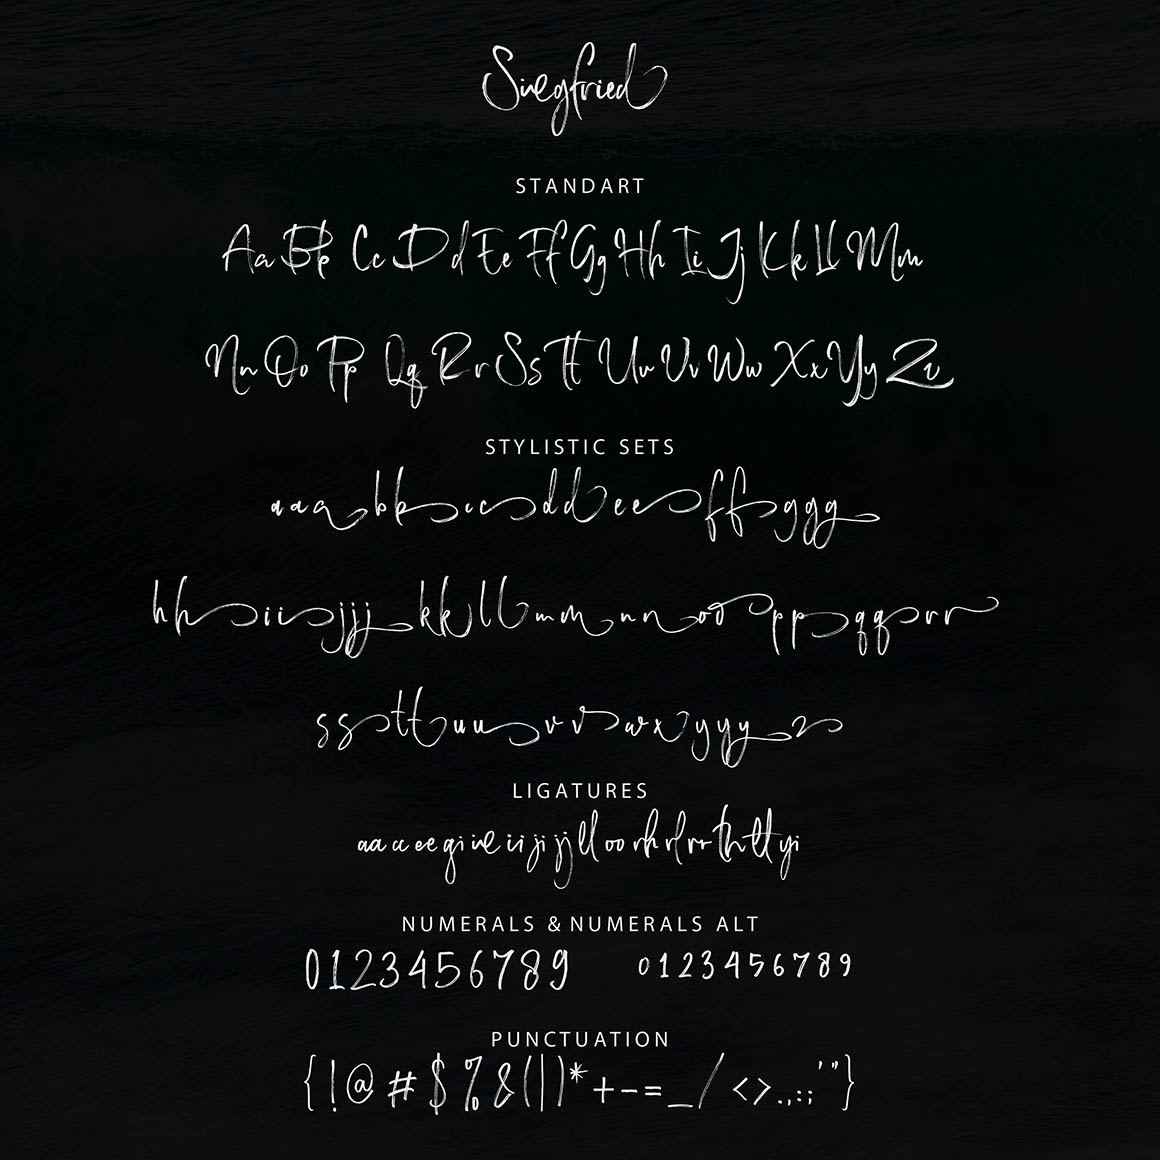 Siegfried
STANDART
Aa Bb Cc Dd Ee Ff Gg Hh Ii Jj Kk Ll Mm
Nn Oo Pp Qq Rr Ss Tt Uu Vv Ww Xx Yy Zz
STYLISTIC SETS
a a a b b c c d d e e f f g g g
h h i i j j j k k l l m m n n o o p p q q r r
s s t t u u v v w x y y y z
LIGATURES
aa cc ee gi ie ii ji jj ll oo rh rl rr th tt yi
NUMERALS & NUMERALS ALT
0123456789 0123456789
PUNCTUATION
{!@#$%&(|)*+-=_/<>.,:;'"}